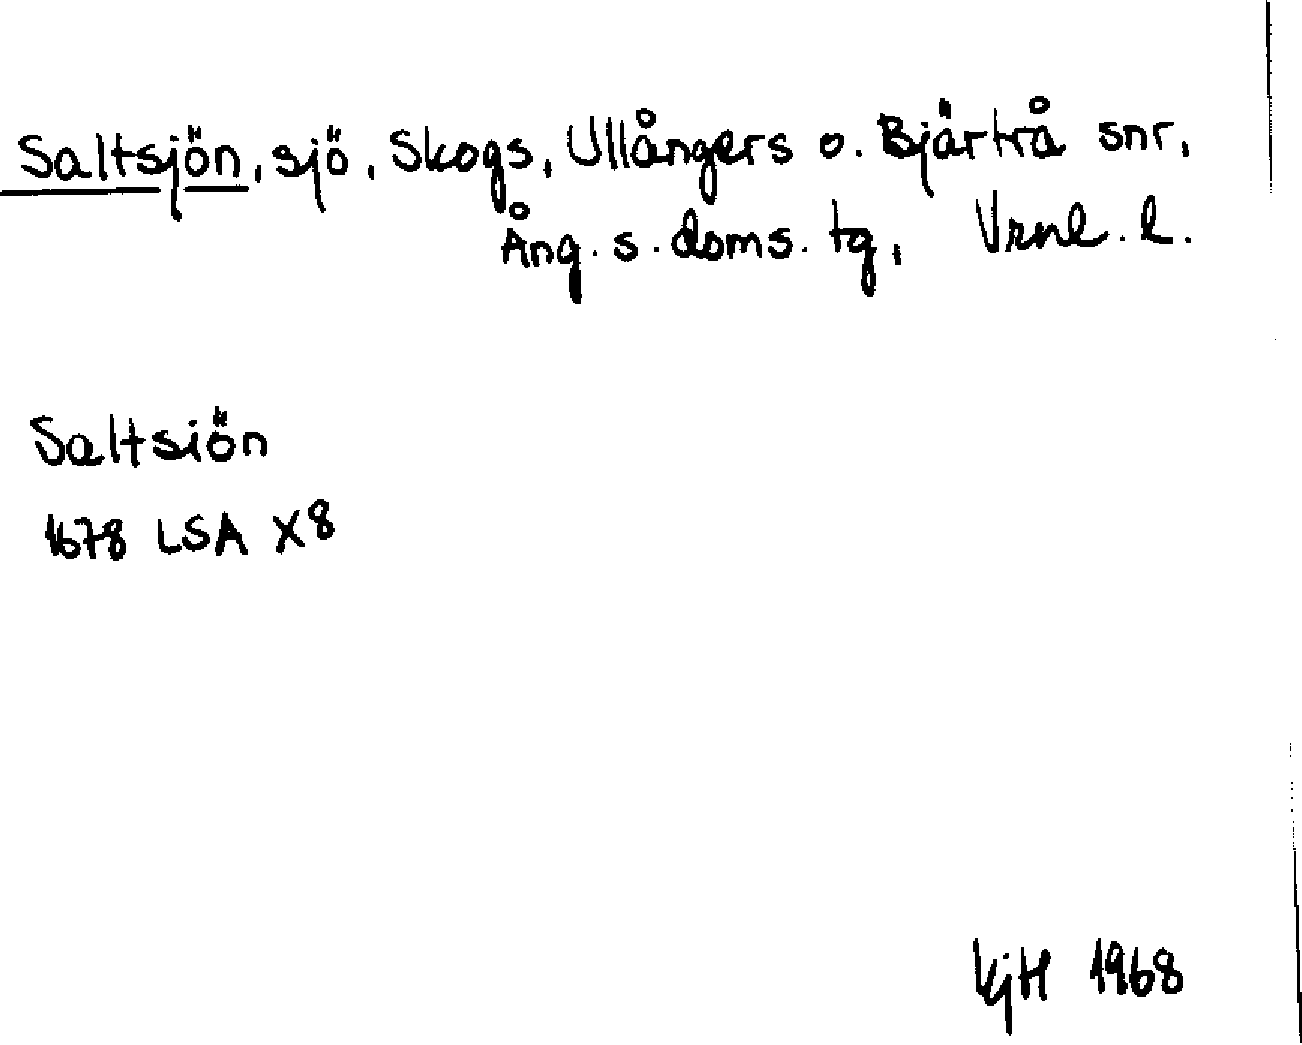 Saltsjön, sjö, Skogs, Ullångers o. Bjärtrå snr,
Ång. s. doms. tg, Vrnl. l.
Saltsiön
1678 LSA X8
KjH 1968